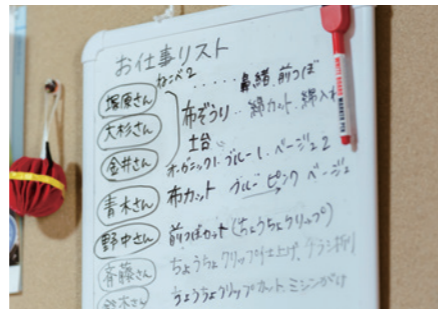 お仕事リスト
ねこべ2
塚原さん ‥‥‥ 鼻緒.前つぼ
大杉さん 布ぞうり‥ 綿カット.綿入れ
土台
金井さん オーガニック1.ブルー1.ベージュ2
青木さん 布カット ブルー ピンク ベージュ
野中さん 前つぼカット(ちょうちょクリップ)
斉藤さん ちょうちょクリップ仕上げ.チラシ折り
鈴木さん ちょうちょクリップカット.ミシンがけ
WHITE BOARD MARKER PEN